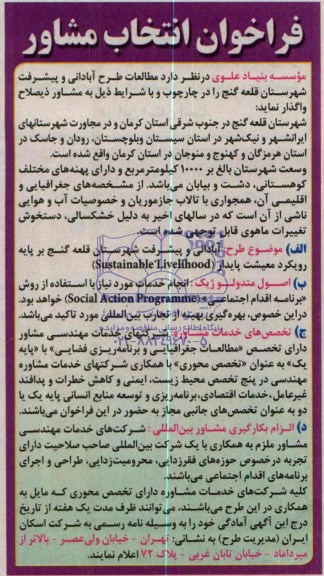 فراخوان انتخاب مشاور
مؤسسه بنیاد علوی درنظر دارد مطالعات طرح آبادانی و پیشرفت
شهرستان قلعه گنج را در چارچوب و با شرایط ذیل به مشاور ذیصلاح
واگذار نماید:
شهرستان قلعه گنج در جنوب شرقی استان کرمان و در مجاورت شهرستانهای
ایرانشهر و نیک‌شهر در استان سیستان وبلوچستان، رودان و جاسک در
استان هرمزگان و کهنوج و منوجان در استان کرمان واقع شده است.
وسعت شهرستان بالغ بر ۱۰۰۰۰ کیلومترمربع و دارای پهنه‌های مختلف
کوهستانی، دشت و بیابان می‌باشد. از مشخصه‌های جغرافیایی و
اقلیمی آن، همجواری با تالاب جازموریان و خصوصیات آب و هوایی
ناشی از آن است که در سالهای اخیر به دلیل خشکسالی، دستخوش
تغییرات ماهوی قابل توجهی شده است.
الف) موضوع طرح: آبادانی و پیشرفت شهرستان قلعه گنج بر پایه
رویکرد معیشت پایدار (Sustainable Livelihood)
ب) اصول متدولوژیک: انجام خدمات مورد نیاز با استفاده از روش
«برنامه اقدام اجتماعی» (Social Action Programme) خواهد بود.
دراین خصوص، بهره‌گیری بهینه از تجارب بین‌المللی مورد تاکید می‌باشد.
ج) تخصص‌های خدمات مشاوره: شرکتهای خدمات مهندسی مشاور
دارای تخصص «مطالعات جغرافیایی و برنامه‌ریزی فضایی» با «پایه
یک» به عنوان «تخصص محوری» با همکاری شرکتهای خدمات مشاوره
مهندسی در پنج تخصص محیط زیست، ایمنی و کاهش خطرات و پدافند
غیرعامل، خدمات اقتصادی، برنامه‌ریزی و توسعه منابع انسانی پایه یک یا
دو به عنوان تخصص‌های جانبی مجاز به حضور در این فراخوان می‌باشند.
د) الزام بکارگیری مشاور بین‌المللی: شرکت‌های خدمات مهندسی
مشاور ملزم به همکاری با یک شرکت بین‌المللی صاحب صلاحیت دارای
تجربه درخصوص حوزه‌های فقرزدایی، محرومیت‌زدایی، طراحی و اجرای
برنامه‌های اقدام اجتماعی می‌باشند.
کلیه شرکت‌های خدمات مشاوره دارای تخصص محوری که مایل به
همکاری در این طرح می‌باشند، می‌توانند ظرف مدت یک هفته از تاریخ
درج این آگهی آمادگی خود را به وسیله نامه رسمی به شرکت اسکان
ایران (مدیریت طرح) به نشانی: تهران - خیابان ولی‌عصر - بالاتر از
میرداماد - خیابان تابان غربی - پلاک ۷۲ اعلام نمایند.